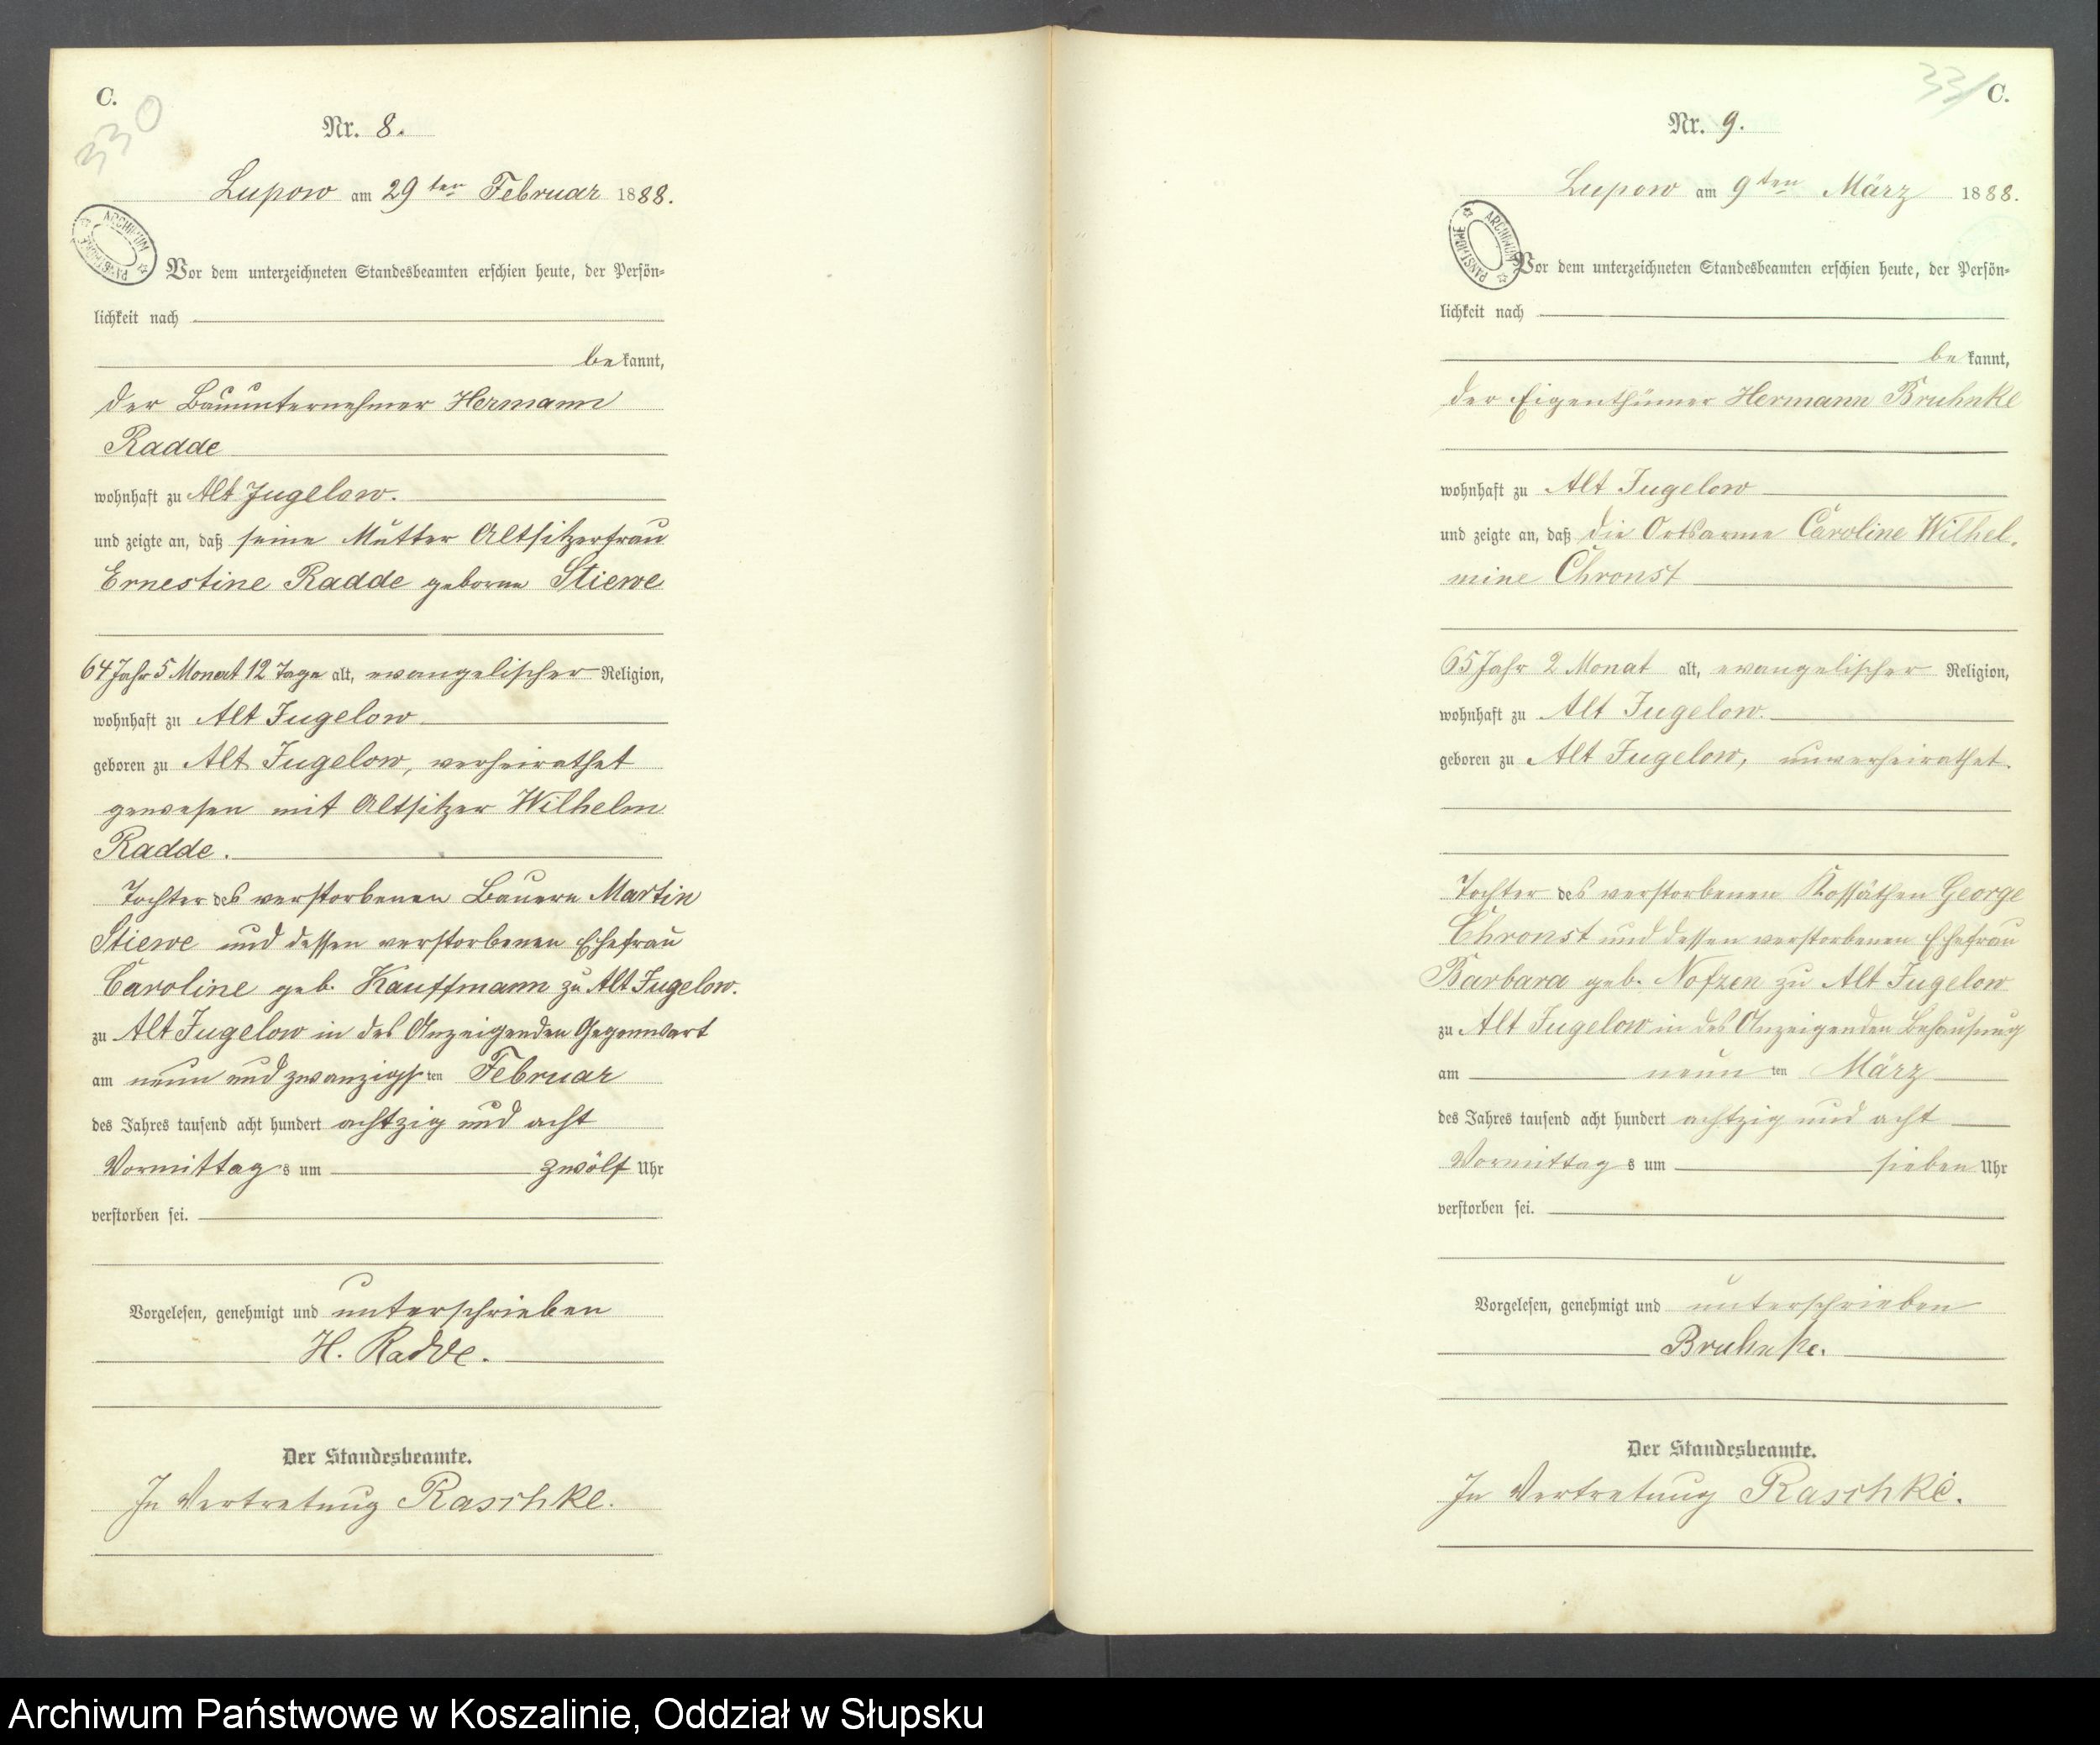 C.
330
Nr. 8.
Lupow am 29ten Februar 1888.
ARCHIWUM PAŃSTWOWE
Vor dem unterzeichneten Standesbeamten erschien heute, der Persön-
lichkeit nach
bekannt,
der Bauunternehmer Hermann
Radde
wohnhaft zu Alt Jugelow.
und zeigte an, daß seine Mutter Altsitzerfrau
Ernestine Radde geborne Stiewe
64 Jahr 5 Monat 12 Tage alt, evangelischer Religion,
wohnhaft zu Alt Jugelow
geboren zu Alt Jugelow, verheirathet
gewesen mit Altsitzer Wilhelm
Radde.
Tochter des verstorbenen Bauern Martin
Stiewe und dessen verstorbenen Ehefrau
Caroline geb. Kauffmann zu Alt Jugelow.
zu Alt Jugelow in des Anzeigenden Gegenwart
am neun und zwanzigsten Februar
des Jahres tausend acht hundert achtzig und acht
Vormittags um zwölf Uhr
verstorben sei.
Vorgelesen, genehmigt und unterschrieben
H. Radde.
Der Standesbeamte.
In Vertretung Raschke.
331
C.
Nr. 9.
Lupow am 9ten März 1888.
ARCHIWUM PAŃSTWOWE
Vor dem unterzeichneten Standesbeamten erschien heute, der Persön-
lichkeit nach
bekannt,
der Eigenthümer Hermann Bruhnke
wohnhaft zu Alt Jugelow
und zeigte an, daß die Ortsarme Caroline Wilhel-
mine Chronst
65 Jahr 2 Monat alt, evangelischer Religion,
wohnhaft zu Alt Jugelow.
geboren zu Alt Jugelow, unverheirathet.
Tochter des verstorbenen Kossäthen George
Chronst und dessen verstorbenen Ehefrau
Barbara geb. Nofzen zu Alt Jugelow
zu Alt Jugelow in des Anzeigenden Behausung
am neunten März
des Jahres tausend acht hundert achtzig und acht
Vormittags um sieben Uhr
verstorben sei.
Vorgelesen, genehmigt und unterschrieben
Bruhnke.
Der Standesbeamte.
In Vertretung Raschke.
Archiwum Państwowe w Koszalinie, Oddział w Słupsku